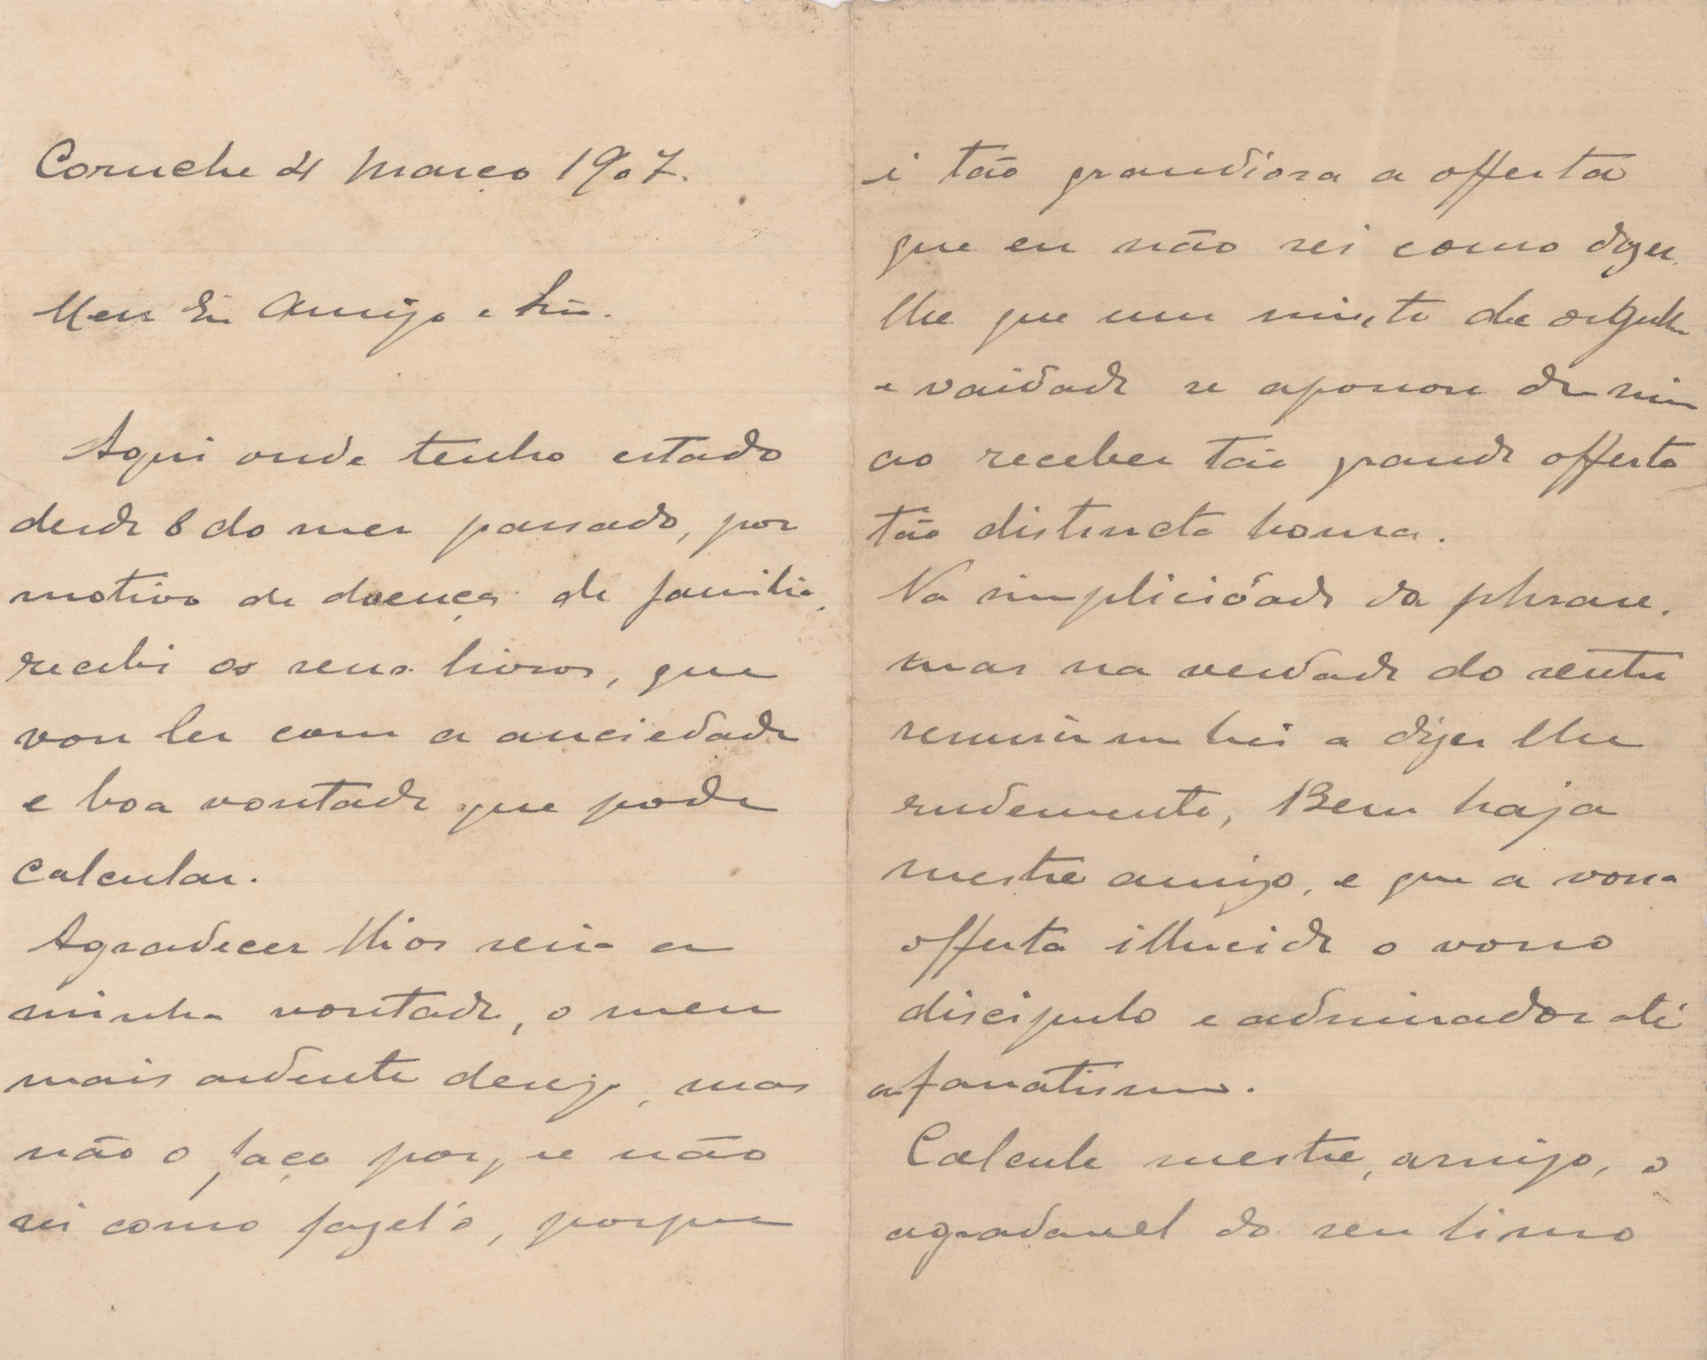 Coruche 4 Março 1907.
Meu Amigo e
Aqui onde tenho estado
desde 8 do mez passado, por
motivo de doença de familia,
recebi os seus livros, que
vou ler com a anciedade
e boa vontade que pode
calcular.
Agradecer lhios seria a
minha vontade, o meu
mais ardente desejo, mas
não o faço porque não
sei como fazel'o, porque
é tão grandiosa a offerta
que eu não sei como dizer
lhe que um mixto de orgulho
e vaidade se apossou de mim
ao receber tão grande offerta
tão distincta honra.
Na simplicidade da phrase,
mas na verdade do sentir
resumir m hei a dizer lhe
rudemente, Bem haja
mestre amigo, e que a vossa
offerta illucide o vosso
discipulo e admirador até
ao fanatismo.
Calcule mestre, amigo, o
agradavel do seu livro